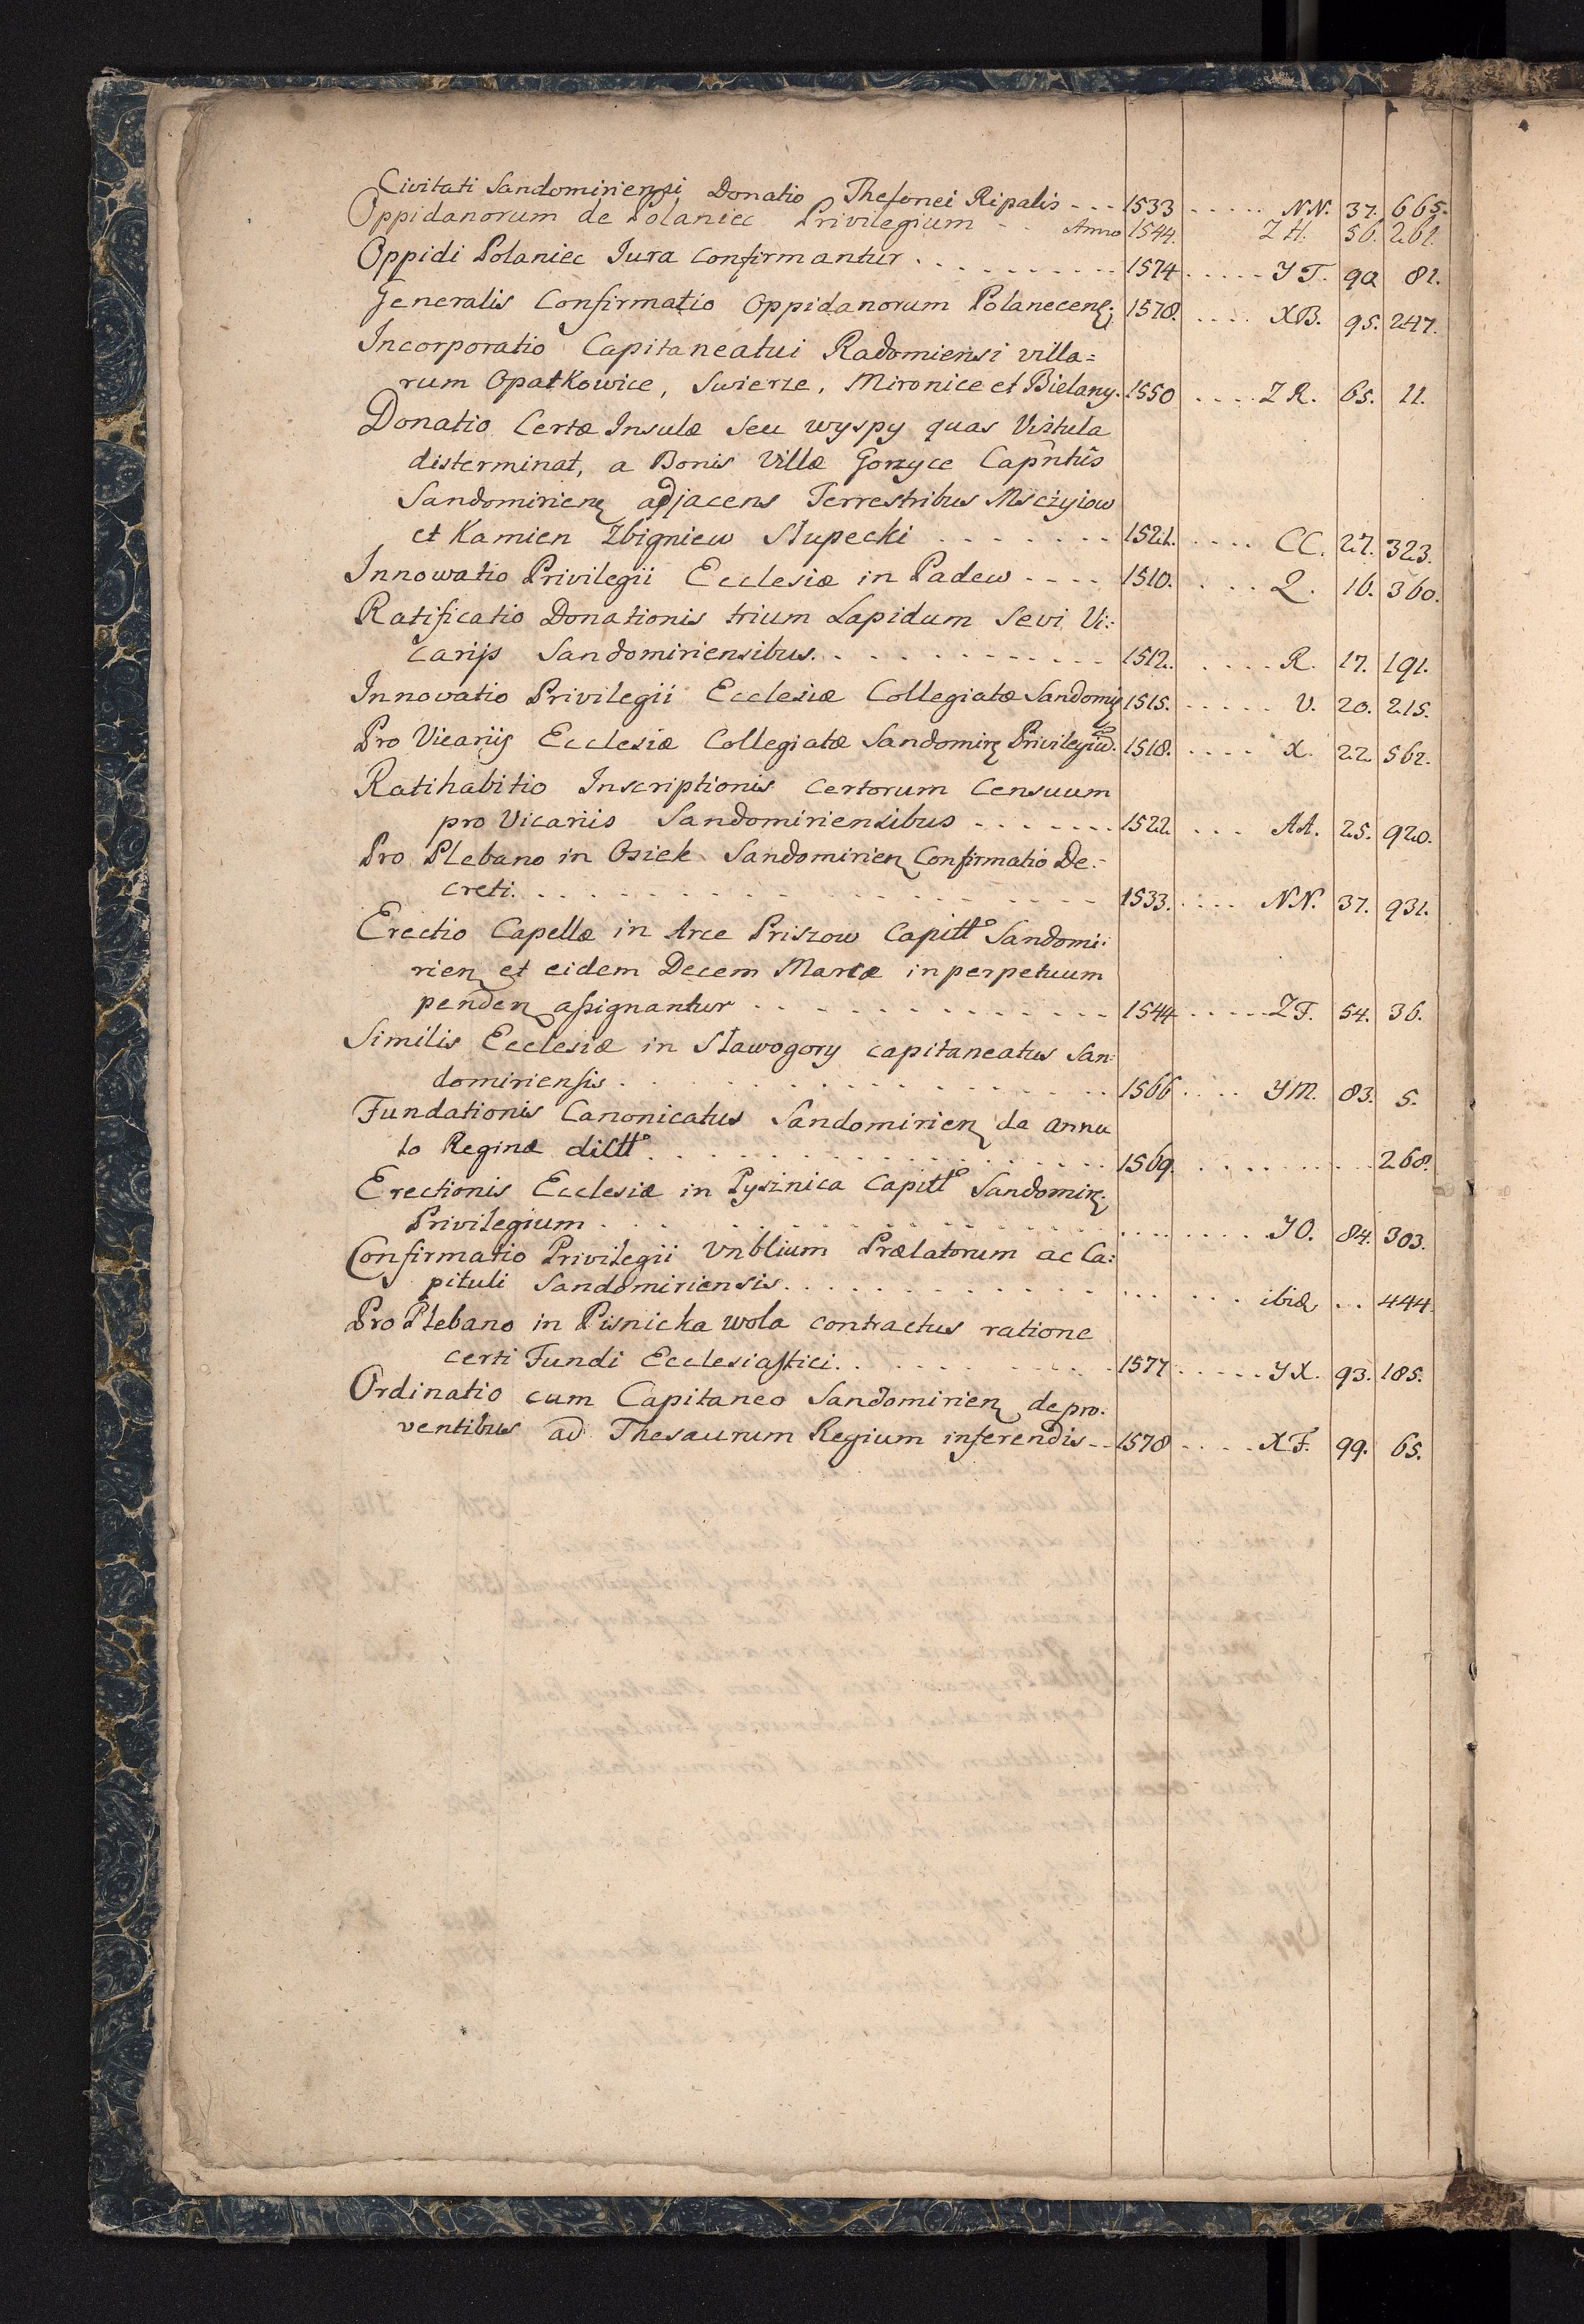 Civitati Sandomiriensi Donatio Thelonei Ripalis - - - 1533 . . . . . N.N. 37. 665.
Oppidanorum de Polaniec Privilegium - - Anno 1544. Z H. 56. 261.
Oppidi Polaniec Jura confirmantur . . . . . . . . . . 1574 . . . . . Y T. 90 81.
Generalis Confirmatio Oppidanorum Polanecenȩ. 1578. . . . . XB. 95. 247.
Incorporatio Capitaneatui Radomiensi villa=
rum Opatkowice, Swierze, Mironice et Bielany. 1550 . . . . Z R. 65. 11.
Donatio Certæ Insulæ seu wyspy quas Vistula
disterminat, a Bonis Villæ Gorzyce Capñtũs
Sandomirien adjacens Terrestribus Msciyiow
et Kamien Zbigniew Słupecki . . . . . . . 1521. . . . . CC. 27. 323.
Innowatio Privilegii Ecclesiæ in Padew - - - - 1510. . . . . Q. 16. 360.
Ratificatio Donationis trium Lapidum Sevi Vi:
carijs Sandomiriensibus. . . . . . . . . . . . 1512. . . . . R. 17. 191.
Innovatio Privilegii Ecclesiæ Collegiatæ Sandomir 1515. . . . . . V. 20. 215.
Pro Vicariis Ecclesiæ Collegiatæ Sandomir Privilegium. 1518. . . . . X. 22 562.
Ratihabitio Inscriptionis certorum Censuum
pro Vicariis Sandomiriensibus . . . . . . . 1522 . . . AA. 25. 920.
Pro Plebano in Osiek Sandomirien Confirmatio De:
creti. . . . . . . . . . . . . . . . . 1533. . . . . N.N. 37. 931.
Erectio Capellæ in Arce Priszow Capittº Sandomi:
rien et eidem Decem Marcæ in perpetuum
penden assignantur . . . . . . . . . . . . . 1544 . . . . . ZF. 54. 36.
Similis Ecclesiæ in Stawogory capitaneatus San:
domiriensis . . . . . . . . . . . . . 1566 . . . . YM. 83. 5.
Fundationis Canonicatus Sandomirien de annu
lo Reginæ dictº . . . . . . . . . . . . . . 1569. . . . . . . . . . 268.
Erectionis Ecclesiæ in Pysznica Capittº Sandomir.
Privilegium . . . . . . . . . . . . . . . . . . . . . YO. 84. 303.
Confirmatio Privilegii Vnblium Prælatorum ac Ca:
pituli Sandomiriensis . . . . . . . . . . . . . . . . . . ibid. . . 444.
Pro Plebano in Pisnicka wola contractus ratione
certi Fundi Ecclesiastici. . . . . . . . . . . 1577 . . . . . YX. 93. 185.
Ordinatio cum Capitaneo Sandomirien de pro:
ventibus ad Thesaurum Regium inferendis - - 1578 . . . . XF. 99. 65.